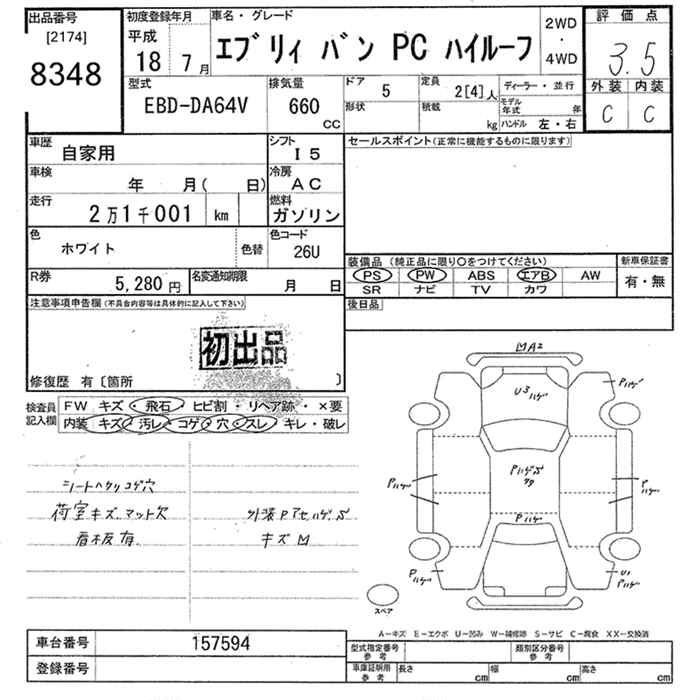 出品番号
[2174]
8348
初度登録年月
平成
18 7月
車名・グレード
エブリィ バン PC ハイルーフ
2WD
・
4WD
評価点
3.5
外装 内装
C C
型式
EBD-DA64V
排気量
660
CC
ドア 5
形状
定員 2[4]人
積載 kg
ディーラー・並行
モデル年式 年
ハンドル 左・右
車歴
自家用
シフト
I5
セールスポイント(正常に機能するものに限ります)
車検
年 月( 日)
冷房
AC
走行
2万1千001 km
燃料
ガソリン
色
ホワイト
色替
色コード
26U
装備品 (純正品に限り○をつけてください)
新車保証書
PS PW ABS エアB AW
有・無
SR ナビ TV カワ
R券
5,280円
名変通知期限
月 日
後日品
注意事項申告欄(不具合内容等は具体的に記入して下さい)
初出品
修復歴 有〔箇所 〕
検査員記入欄
FW キズ・飛石・ヒビ割・リペア跡・×要
内装 キズ・汚レ・コゲ・穴・スレ・キレ・破レ
シートヘタリコゲ穴
荷室キズ、マット欠
看板有
外装Pアセハゲ、S
キズM
MA2
U3 ハゲ
Pハゲ
Pハゲ
Pハゲ
Pハゲ
Pハゲ
U1
Pハゲ
スペア
A-キズ E-エクボ U-凹み W-補修跡 S-サビ C-腐食 XX-交換済
車台番号
157594
登録番号
型式指定番号
参考
類別区分番号
参考
車庫証明用
参考
長さ cm
幅 cm
高さ cm